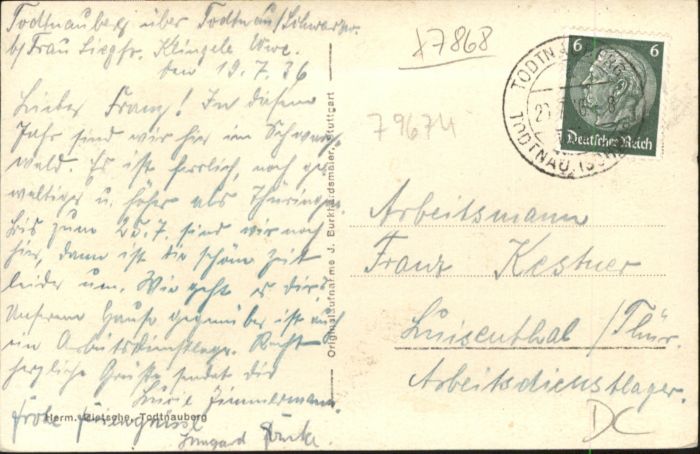 Todtnauberg über Todtnau/Schwarzw.
b/ Frau Siegfr. Klingele Wwe.
den 19.7.36
Lieber Franz! In diesem
Jahr sind wir hier im Schwarz-
wald. Es ist herrlich, noch ge-
waltiger u. höher als Thüringen.
Bis zum 25.7. sind wir noch
hier, dann ist die schöne Zeit
leider um. Wie geht es dir?
Unserem Hause gegenüber ist auch
ein Arbeitsdienstlager. Recht
herzliche Grüße sendet dir
Zimmermann.
Frohe
Irmgard
Herm. Todtnauberg
Originalaufnahme J. Burkhardsmaier, Stuttgart
17868
79674
6 6
Deutsches Reich
TODTNAUBERG
TODTNAU (SCH
Arbeitsmann
Franz Kestner
Luisenthal/Thür.
Arbeitsdienstlager.
DC